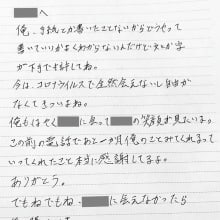 へ
俺、手紙とか書いたことないからどうやって
書いていいかよくわからないんだけど文とか字
が下手でも許してね。
今は、コロナウイルスで全然会えないし自由が
なくてきついよね。
俺もはやく に会って の笑顔が見たいよ。
この前の電話であと一か月俺のことみてくれるって
いってくれたこと本当に感謝してるよ。
ありがとう。
でもねでもね、 に会えなかったら